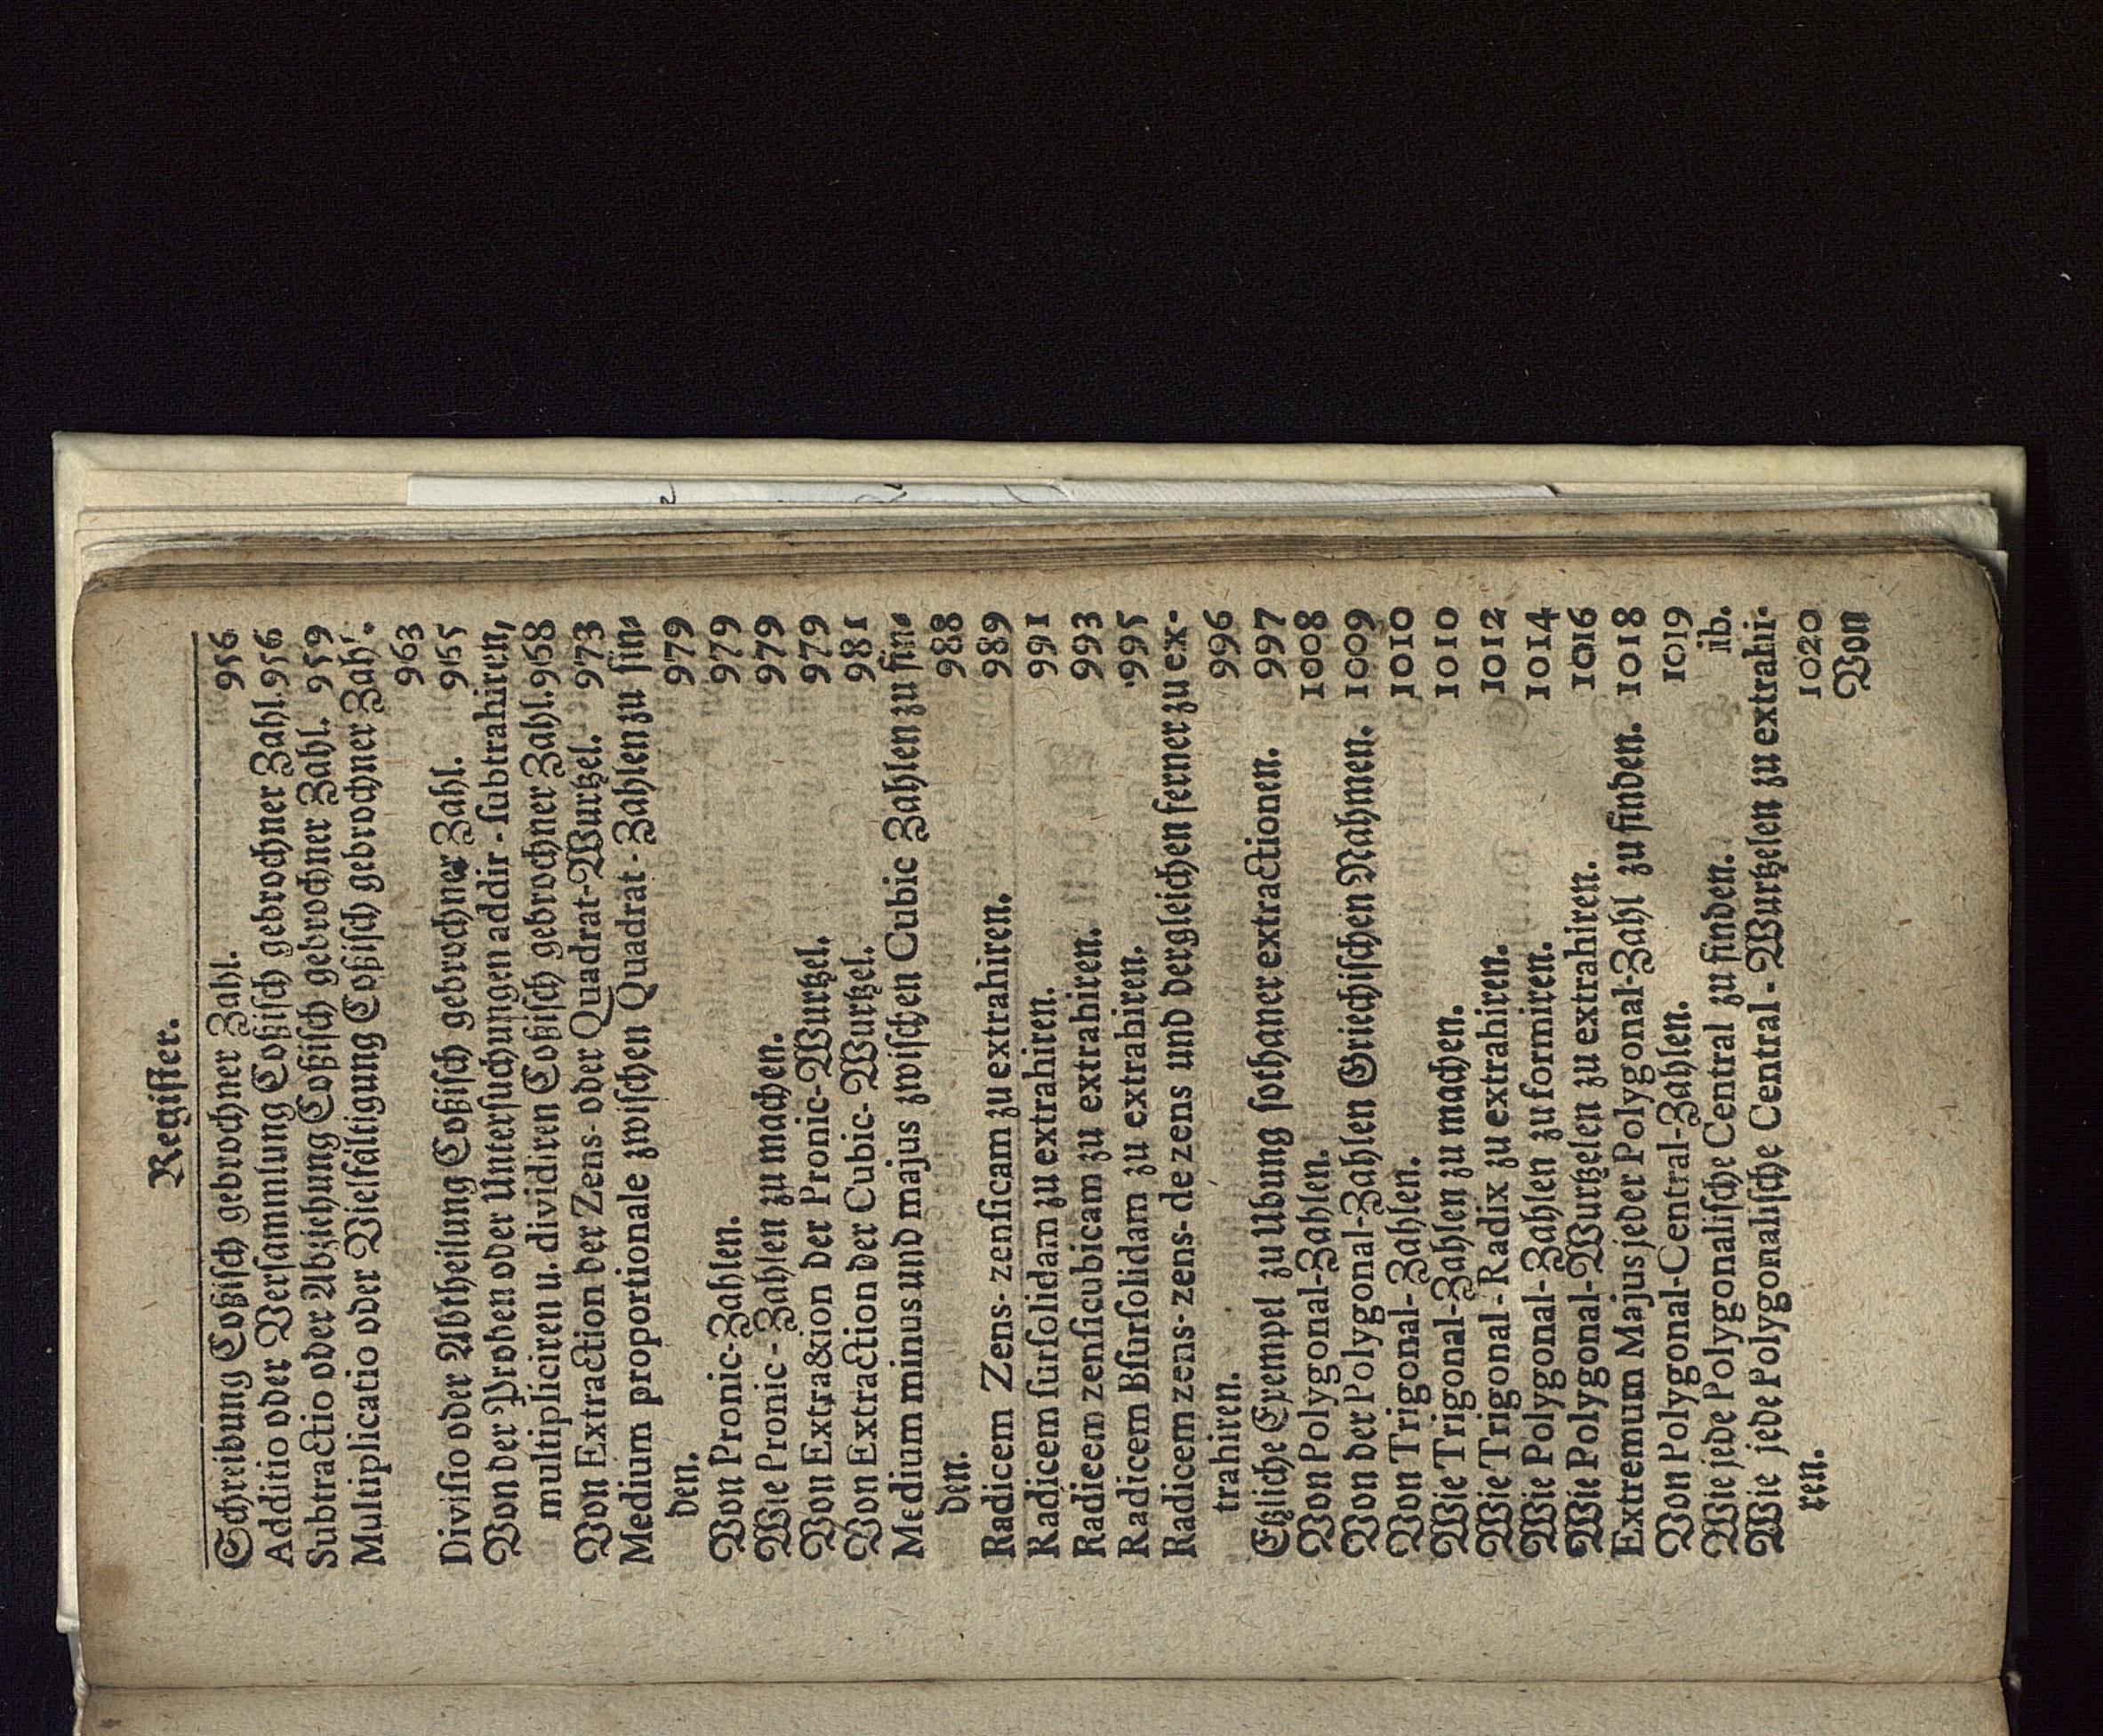 Register.
Schreibung Coßisch gebrochner Zahl. 956
Additio oder Versammlung Coßisch gebrochner Zahl. 956
Subtractio oder Abziehung Coßisch gebrochner Zahl. 959
Multiplicatio oder Vielfältigung Coßisch gebrochner Zahl.
963
Divisio oder Abtheilung Coßisch gebrochner Zahl. 9155
Von der Proben oder Untersuchungen addir-subtrahiren,
multipliciren u. dividiren Coßisch gebrochner Zahl. 968
Von Extraction der Zens- oder Quadrat-Wurtzel. 973
Medium proportionale zwischen Quadrat-Zahlen zu fin-
den. 979
Von Pronic-Zahlen. 979
Wie Pronic-Zahlen zu machen. 979
Von Extra&ion der Pronic-Wurtzel. 979
Von Extraction der Cubic-Wurtzel. 981
Medium minus und majus zwischen Cubic Zahlen zu fin-
den. 988
Radicem Zens-zensicam zu extrahiren. 989
Radicem sursolidam zu extrahiren. 991
Radicem zensicubicam zu extrahiren. 993
Radicem Bsursolidam zu extrahiren. 995
Radicem zens-zens-de zens und dergleichen ferner zu ex-
trahiren. 996
Etzliche Exempel zu Ubung sothaner extractionen. 997
Von Polygonal-Zahlen. 1008
Von der Polygonal-Zahlen Griechischen Nahmen. 1009
Von Trigonal-Zahlen. 1010
Wie Trigonal-Zahlen zu machen. 1010
Wie Trigonal-Radix zu extrahiren. 1012
Wie Polygonal-Zahlen zu formiren. 1014
Wie Polygonal-Wurtzelen zu extrahiren. 1016
Extremum Majus jeder Polygonal-Zahl zu finden. 1018
Von Polygonal-Central-Zahlen. 1019
Wie jede Polygonalische Central zu finden. ib.
Wie jede Polygonalische Central-Wurtzelen zu extrahi-
ren. 1020
Von